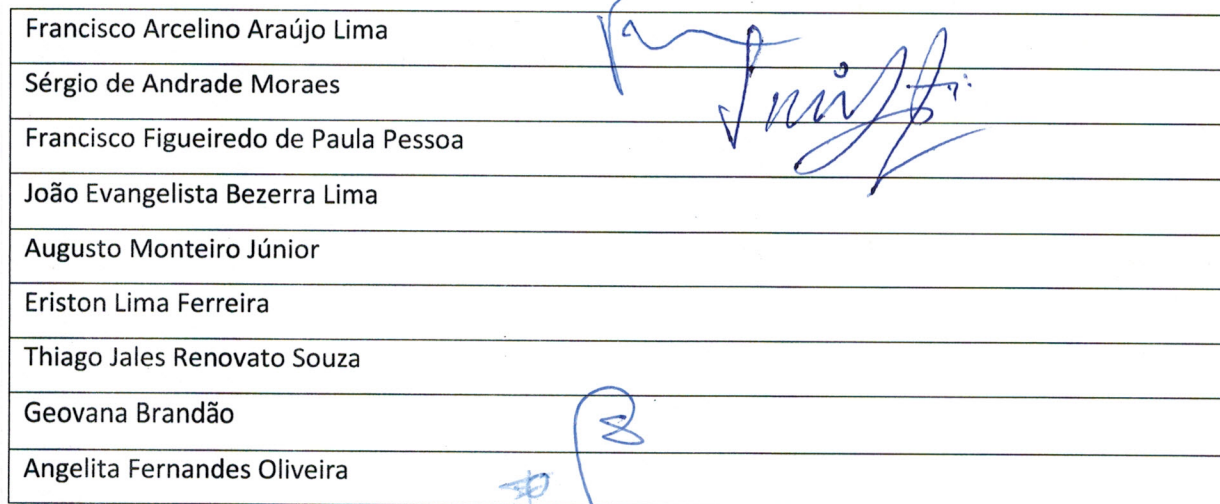 Francisco Arcelino Araújo Lima
Sérgio de Andrade Moraes
Francisco Figueiredo de Paula Pessoa
João Evangelista Bezerra Lima
Augusto Monteiro Júnior
Eriston Lima Ferreira
Thiago Jales Renovato Souza
Geovana Brandão
Angelita Fernandes Oliveira